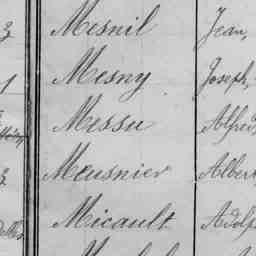 3 Mesnil Jean,
1 Mesny Joseph,
Messu Alfred
3 Meusnier Albert
Micault Adolp